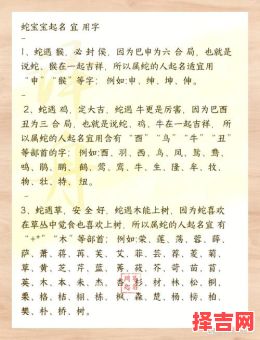 蛇宝宝起名 宜 用字
1、蛇遇 猴,必 封 侯,因为巴申为六 合 局,也就是
说蛇、猴在一起吉祥,所以属蛇的人起名适宜用
“申”“猴”等字; 例如:申、绅、坤、伸。
2、蛇遇 鸡,定大吉,蛇遇 牛更是厉害,因为巴酉
丑为三 合局,也就是说蛇、鸡、牛在一起吉祥,
所以属蛇的人起名宜用含有 “酉” “鸟” “牛” “丑”
等部首的字; 例如:酉、羽、西、鸟、凤、莺、鸯、
鸣、鹃、鹏、鹤、莺、鸾、牛、生、隆、牟、牧、
物、壮、特、纽。
3、蛇遇草,安 全 好,蛇遇木能上树,因为蛇喜欢
在草丛中觅食也喜欢上树,所以属蛇的人起名宜 有
“艹” “木” 等部首; 例如:荣、莲、荡、蓉、薛、
萨、萧、蒋、苒、芙、艾、菲、芸、荞、蔓、菊、
草、黄、芝、芹、蓝、菁、莜、芥、苛、苗、苜、
英、木、本、朱、杰、杏、杉、材、林、松、桐、
栗、格、桔、栩、栋、枫、森、楚、杨、榜、柏、
樊、朴、桥、树。
择吉网
zejiwang.com